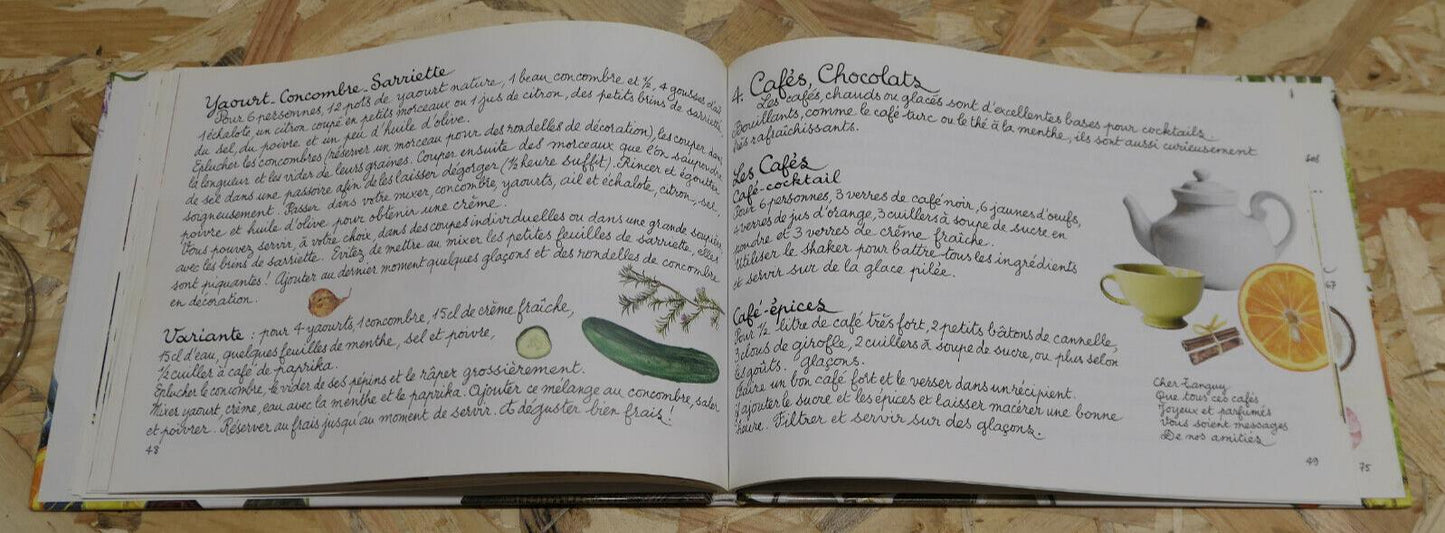 Yaourt-Concombre-Sarriette
Pour 6 personnes, 12 pots de yaourt nature, 1 beau concombre et ½, 4 gousses d'ail
1 échalote, un citron coupé en petits morceaux ou 1 jus de citron, des petits brins de sarriette,
du sel, du poivre et un peu d'huile d'olive.
Eplucher les concombres (réserver un morceau pour des rondelles de décoration), les couper dans
la longueur et les vider de leurs graines. Couper ensuite des morceaux que l'on saupoudre
de sel dans une passoire afin de les laisser dégorger (½ heure suffit). Rincer et égoutter
soigneusement. Passer dans votre mixer, concombre, yaourts, ail et échalote, citron, sel,
poivre et huile d'olive pour obtenir une crème.
Vous pouvez servir, à votre choix, dans des coupes individuelles ou dans une grande soupière
avec les brins de sarriette. Evitez de mettre au mixer les petites feuilles de sarriette, elles
sont piquantes ! Ajouter au dernier moment quelques glaçons et des rondelles de concombre
en décoration.
Variante : pour 4 yaourts, 1 concombre, 15 cl de crème fraîche,
15 cl d'eau, quelques feuilles de menthe, sel et poivre,
½ cuiller à café de paprika.
Eplucher le concombre, le vider de ses pépins et le râper grossièrement.
Mixer yaourt, crème, eau avec la menthe et le paprika. Ajouter ce mélange au concombre, saler
et poivrer. Réserver au frais jusqu'au moment de servir. A déguster bien frais !
48
4. Cafés, Chocolats
Les cafés, chauds ou glacés sont d'excellentes bases pour cocktails
Bouillants, comme le café turc ou le thé à la menthe, ils sont aussi curieusement
très rafraîchissants.
Les Cafés
Café-cocktail
Pour 6 personnes, 3 verres de café noir, 6 jaunes d'œufs,
4 verres de jus d'orange, 3 cuillers à soupe de sucre en
poudre et 3 verres de crême fraîche.
Utiliser le shaker pour battre tous les ingrédients
et servir sur de la glace pilée.
Café-épices
Pour ½ litre de café très fort, 2 petits bâtons de cannelle,
3 clous de girofle, 2 cuillers à soupe de sucre, ou plus selon
les goûts. glaçons.
Faire un bon café fort et le verser dans un récipient.
Y ajouter le sucre et les épices et laisser macérer une bonne
heure. Filtrer et servir sur des glaçons.
Cher Tanguy
Que tous ces cafés
Joyeux et parfumés
Vous soient messages
De nos amitiés
49
67
75